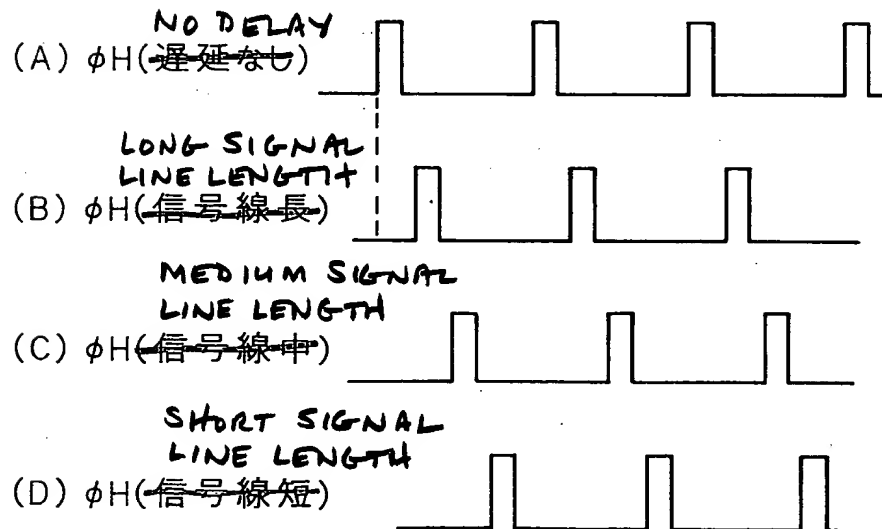 NO DELAY
(A) φH(遅延なし)
LONG SIGNAL
LINE LENGTH
(B) φH(信号線長)
MEDIUM SIGNAL
LINE LENGTH
(C) φH(信号線中)
SHORT SIGNAL
LINE LENGTH
(D) φH(信号線短)